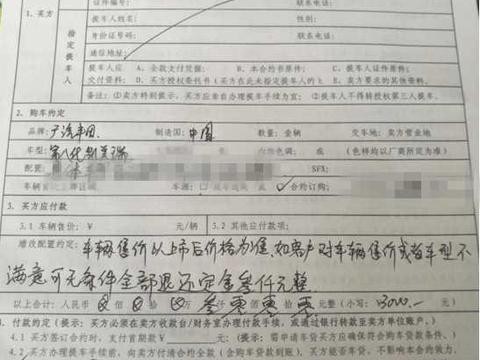 证件编号：
联系电话：
1. 买方
提车人姓名： 性别：
指定提车人
身份证号码： 联系电话：
通信地址：
提车人应 A、全款支付凭据； B、本合约书原件； C、提车人证件原件；
交付资料： D、买方授权委托书（买方在此未指定提车人的） E、卖方要求的其他资料。
备注：①卖方特别提示，买方应亲自办理提车手续为宜；②提车人不得转授权第三人提车。
2. 购车约定
品牌：广汽丰田 制造国：中国 数量：壹辆 交车地：卖方营业地
车型：第八代凯美瑞 色调： 或 （色样均以厂商所定为准）
配置： SFX：
车源： 或 ✓合约订购：
3. 买方应付款
3.1 车辆售价：￥ 元/辆 3.2 其他应付款项：
增改配置约定：车辆售价以上市后价格为准，如客户对车辆售价或者车型不
满意可无条件全部退还定金叁仟元整
以上合计：人民币 佰 拾 万 叁 零 零 零 元整（小写：3000.-
付款约定（提示：买方必须在卖方收款台/财务室办理付款手续，或通过银行转款至卖方单位账户。）
4.1 签署本合约时，支付首期款￥ 元；
4.2 办理提车手续前，向卖方付清合约余款（含购车贷款到账）。买方能否贷款，不影响本合约效